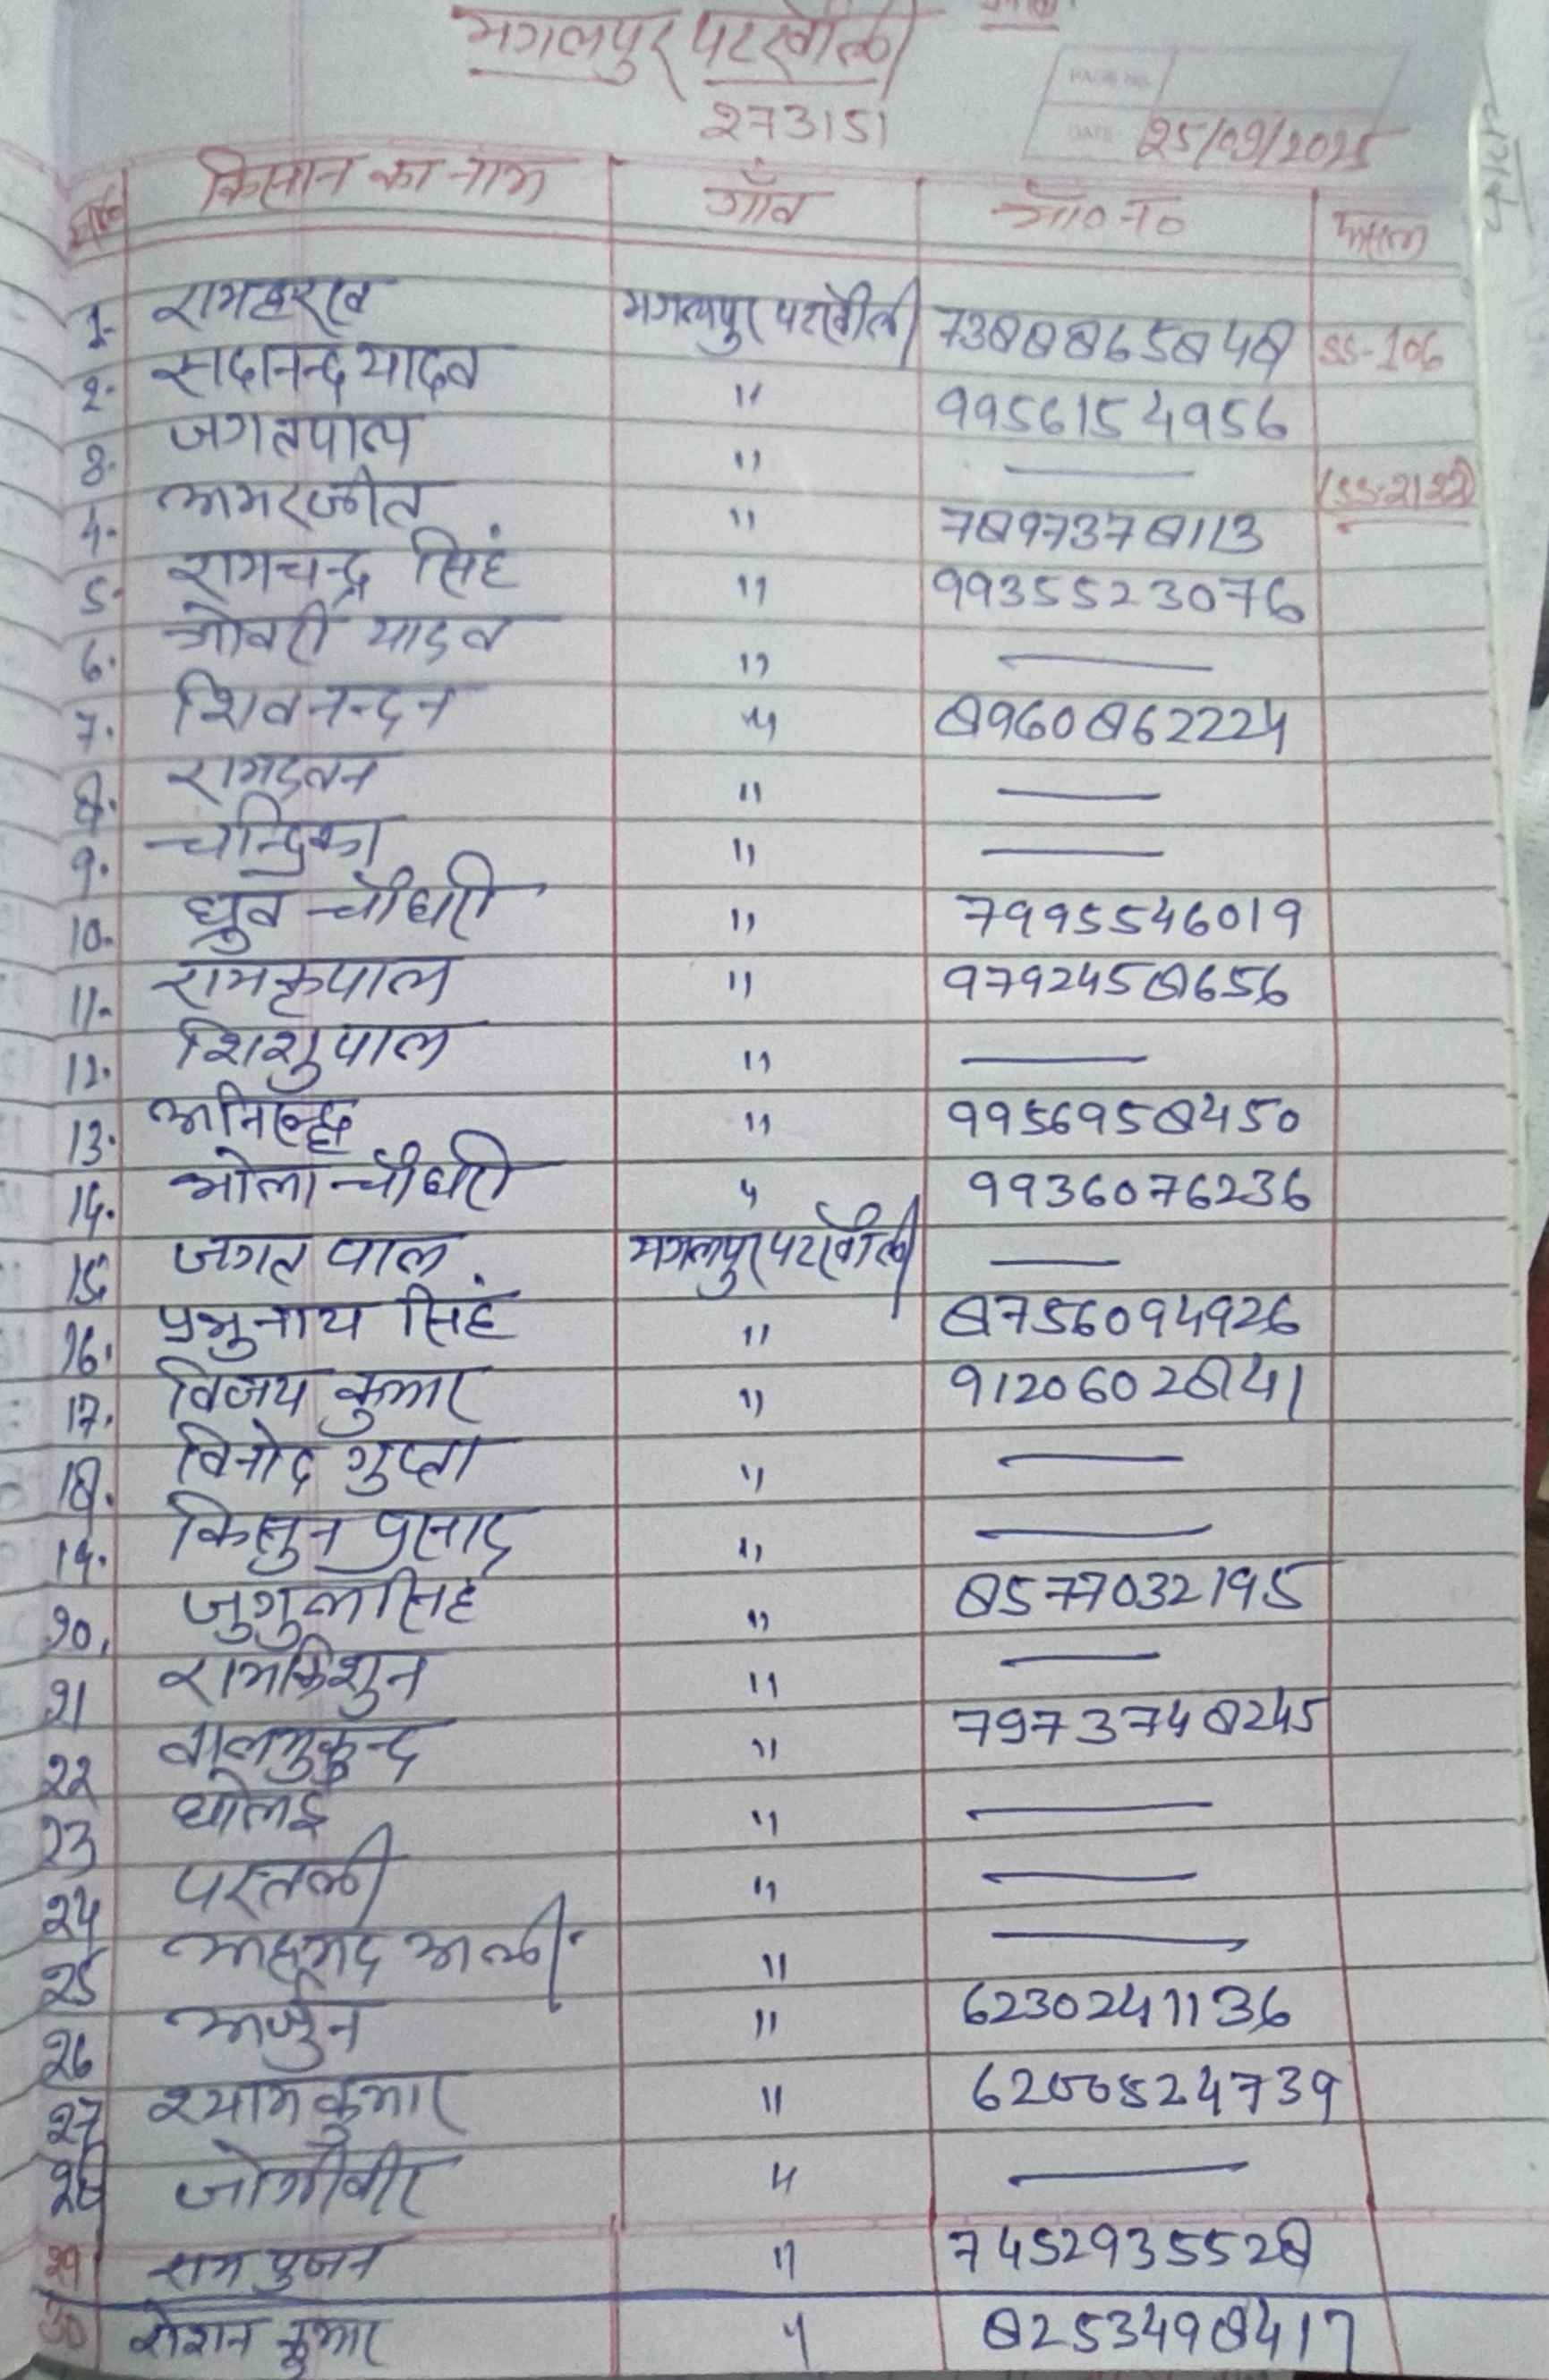 मगलपुर पटखौली
273151
PAGE NO.
DATE 25/09/2025
किसान का नाम गाँव मो0 न0 फसल
1. रामहरख मगलपुर पटखौली 7388865848 SS-106
2. सदानन्द यादव " 9956154956
3. जगतपाल " —
4. अमरजीत " 7897378113 (SS-2122)
5. रामचन्द्र सिहं " 9935523076
6. गोबरी यादव " —
7. शिवनन्दन " 8960862224
8. " —
9. चन्द्रिका " —
10. ध्रुव चौधरी " 7995546019
11. रामकृपाल " 9792458656
12. शिशुपाल " —
13. अनिरुद्ध " 9956958450
14. भोला चौधरी " 9936076236
15 जगत पाल मगलपुर पटखौली —
16. प्रभुनाथ सिहं " 8756094926
17. विजय कुमार " 9120602841
18. विनोद गुप्ता " —
19. किसुन प्रसाद " —
20. जुगुल सिहं " 8577032195
21 रामकिशुन " —
22 बालमुकुन्द " 7973748245
23 घोलई " —
24 " —
25 अहमद अली " —
26 अर्जुन " 6230241136
27 श्याम कुमार " 6200524739
28 जोगीबीर " —
29 राम पुजन " 7452935528
30 रोशन कुमार " 8253498417